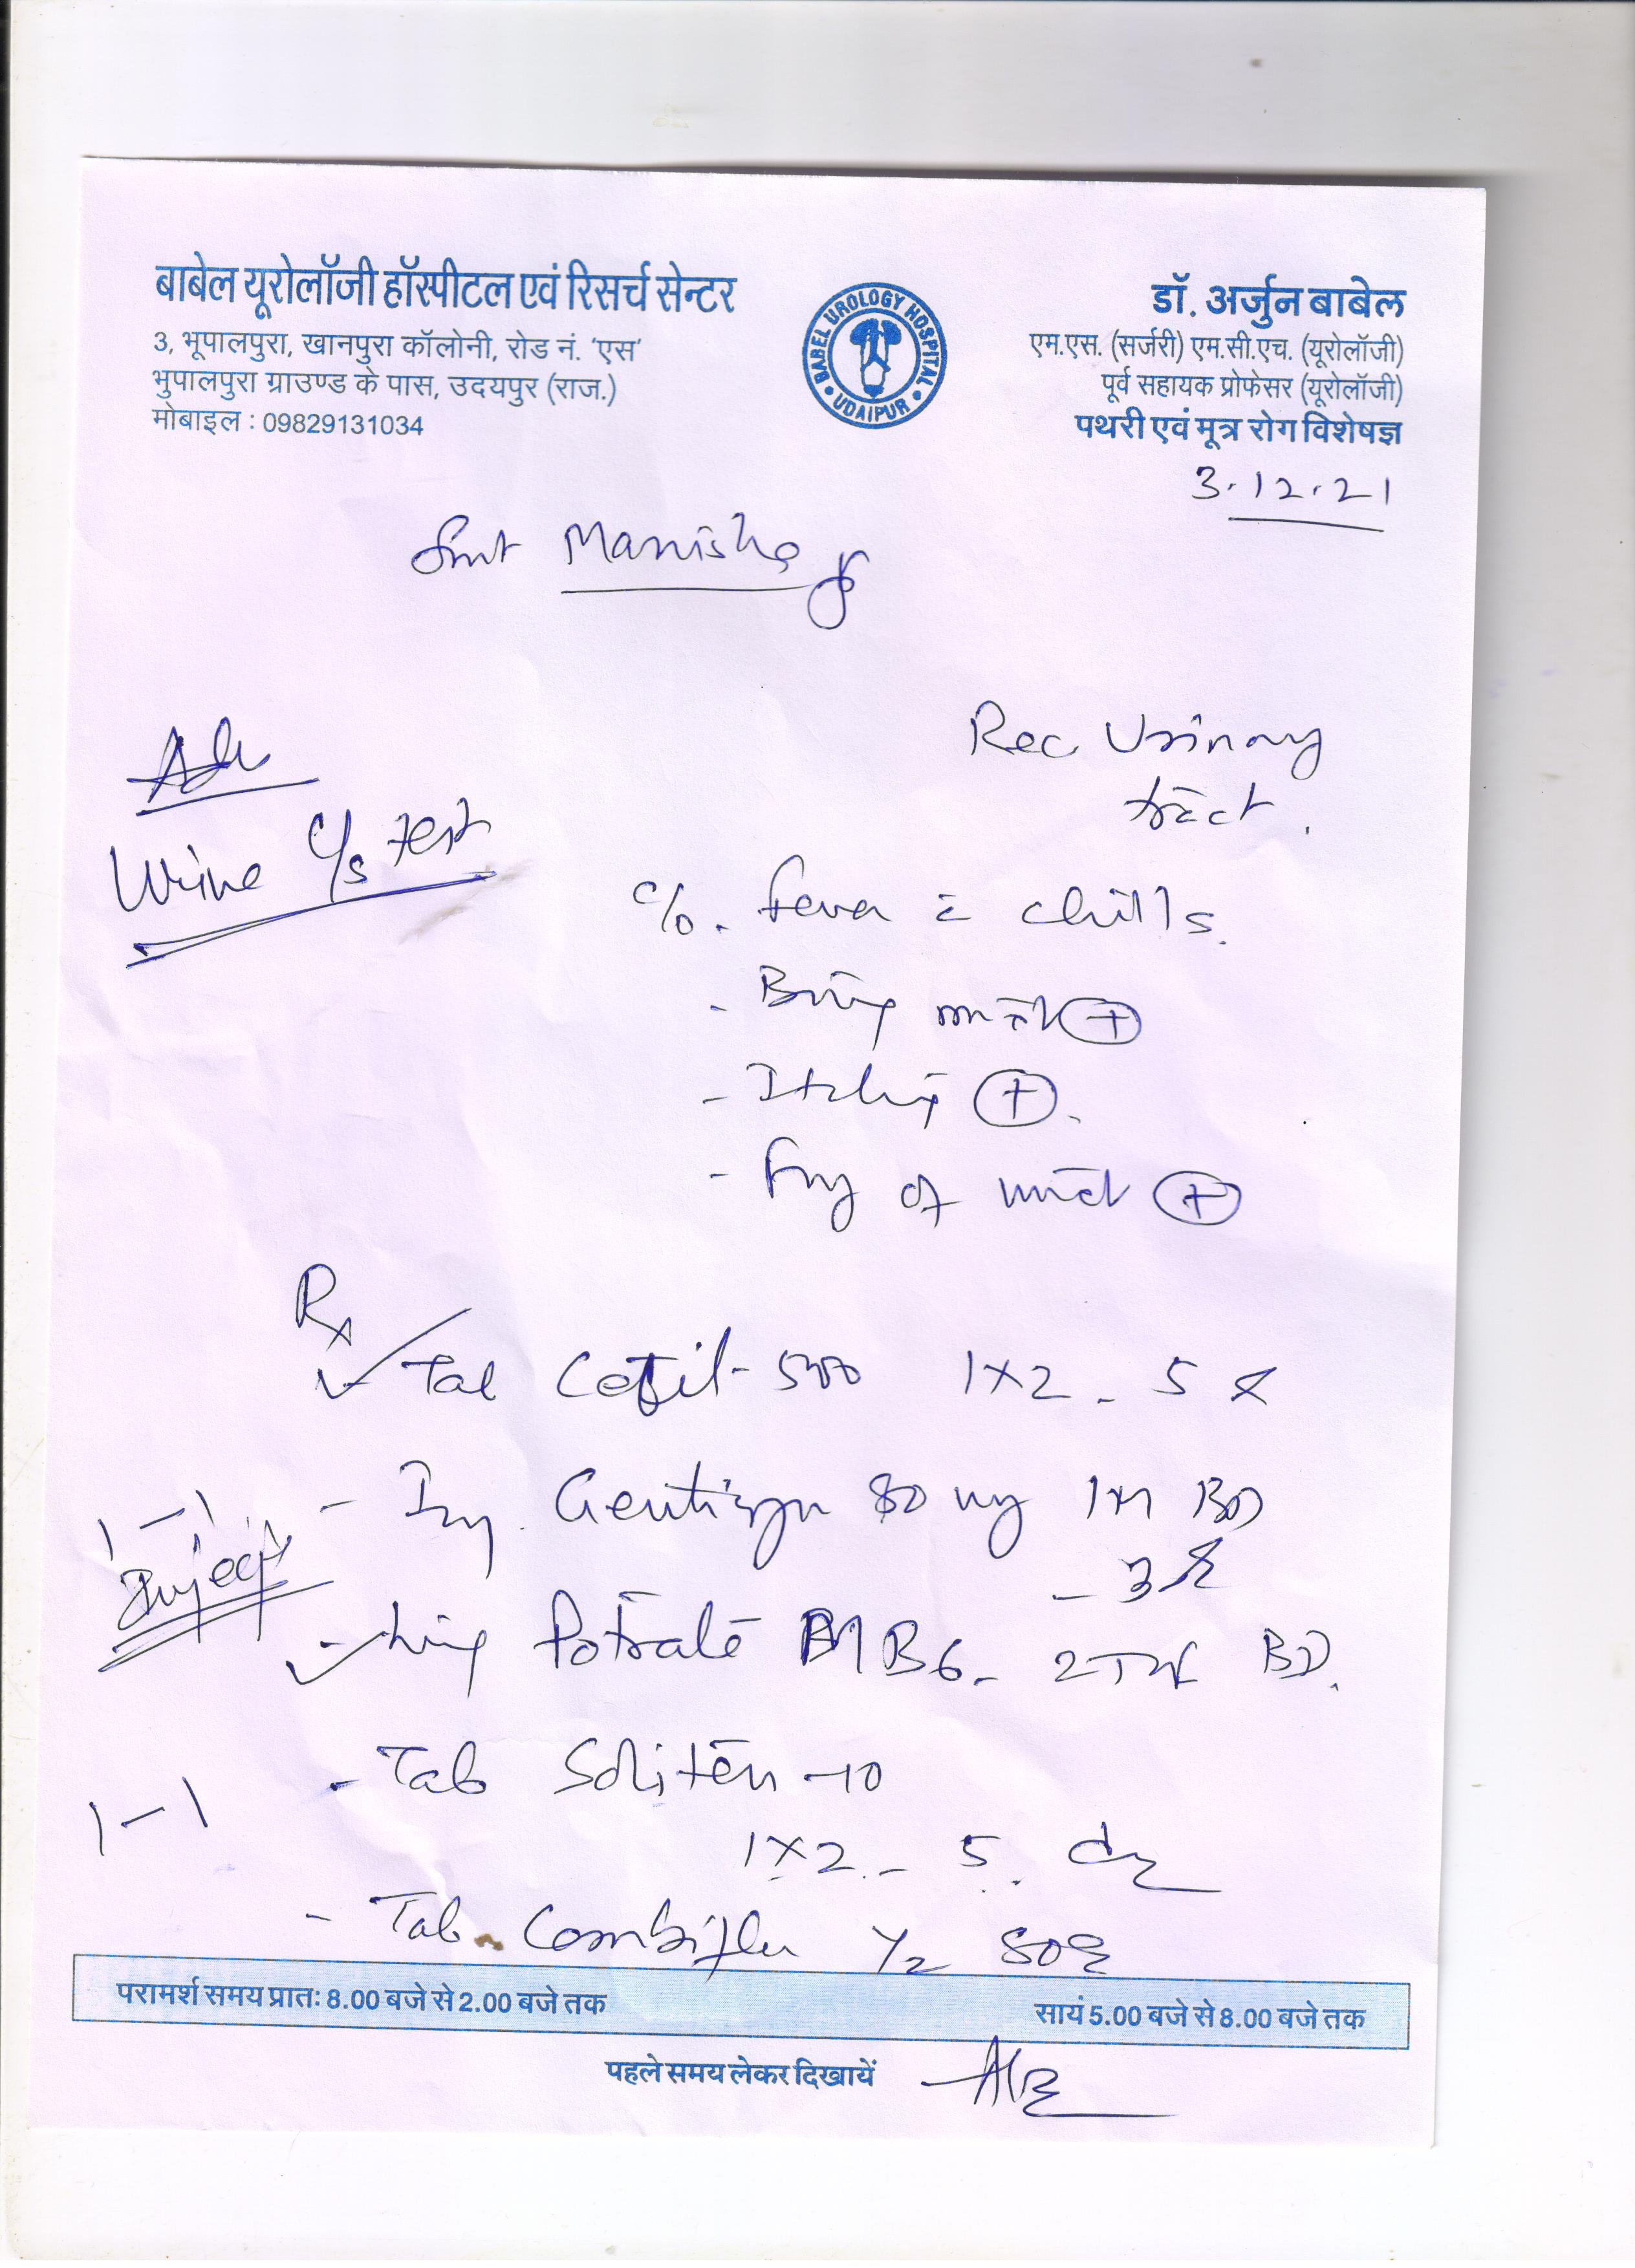 बाबेल यूरोलॉजी हॉस्पीटल एवं रिसर्च सेन्टर
3, भूपालपुरा, खानपुरा कॉलोनी, रोड नं. 'एस'
भुपालपुरा ग्राउण्ड के पास, उदयपुर (राज.)
मोबाइल : 09829131034
BABEL UROLOGY HOSPITAL
UDAIPUR
डॉ. अर्जुन बाबेल
एम.एस. (सर्जरी) एम.सी.एच. (यूरोलॉजी)
पूर्व सहायक प्रोफेसर (यूरोलॉजी)
पथरी एवं मूत्र रोग विशेषज्ञ
3.12.21
Smt Manisha
Rec Urinary
tract.
Adv
Urine c/s test
c/o. fever c chills.
- Itching +
of +
Rx
Tab 500 1x2 - 5
1-1
- Inj. 80 mg IM BD
- 3
Inject
MB6 - BD.
- Tab Soliten -10
1-1
1x2 - 5
- Tab Combiflam 1/2 SOS
परामर्श समय प्रातः 8.00 बजे से 2.00 बजे तक
सायं 5.00 बजे से 8.00 बजे तक
पहले समय लेकर दिखायें